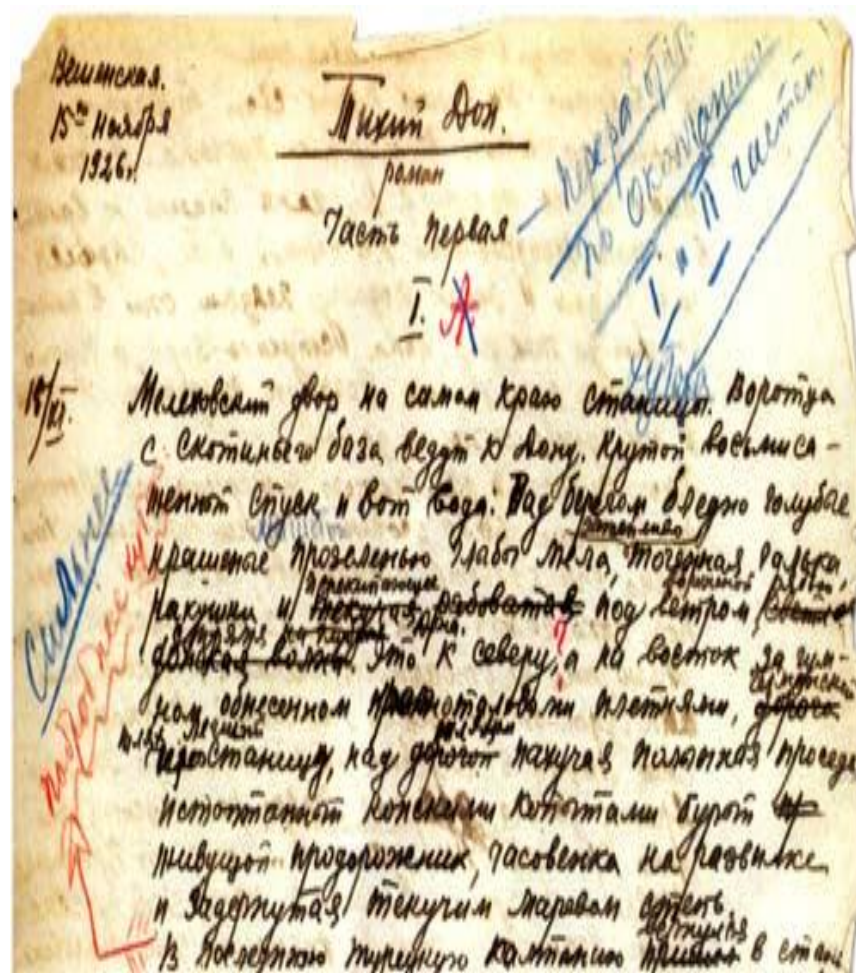 Вешенская.
15го ноября
1926г.
Тихий Дон.
роман
Часть первая
I.
Переработать
по окончании
I и II частей.
хутора
15/XI.
Мелеховский двор на самом краю станицы. Воротца
с скотиньего база ведут к Дону. Крутой восьмиса-
женный спуск и вот вода: Над берегом бледно голубые
крашеные прозеленью глыбы мела, точеная галька
ракушки и текучая рябоватая под ветром
донская волна. Это к северу, а на восток за гум-
ном обнесенном плетнями, дорога
станицу, над дорогой пахучая полынная проседь
истоптанный конскими копытами бурый
живущой придорожник, часовенка на развилке
и задернутая текучим маревом степь.
вернулся
В последнюю турецкую кампанию пришел в стани
Сильнее
подробнее